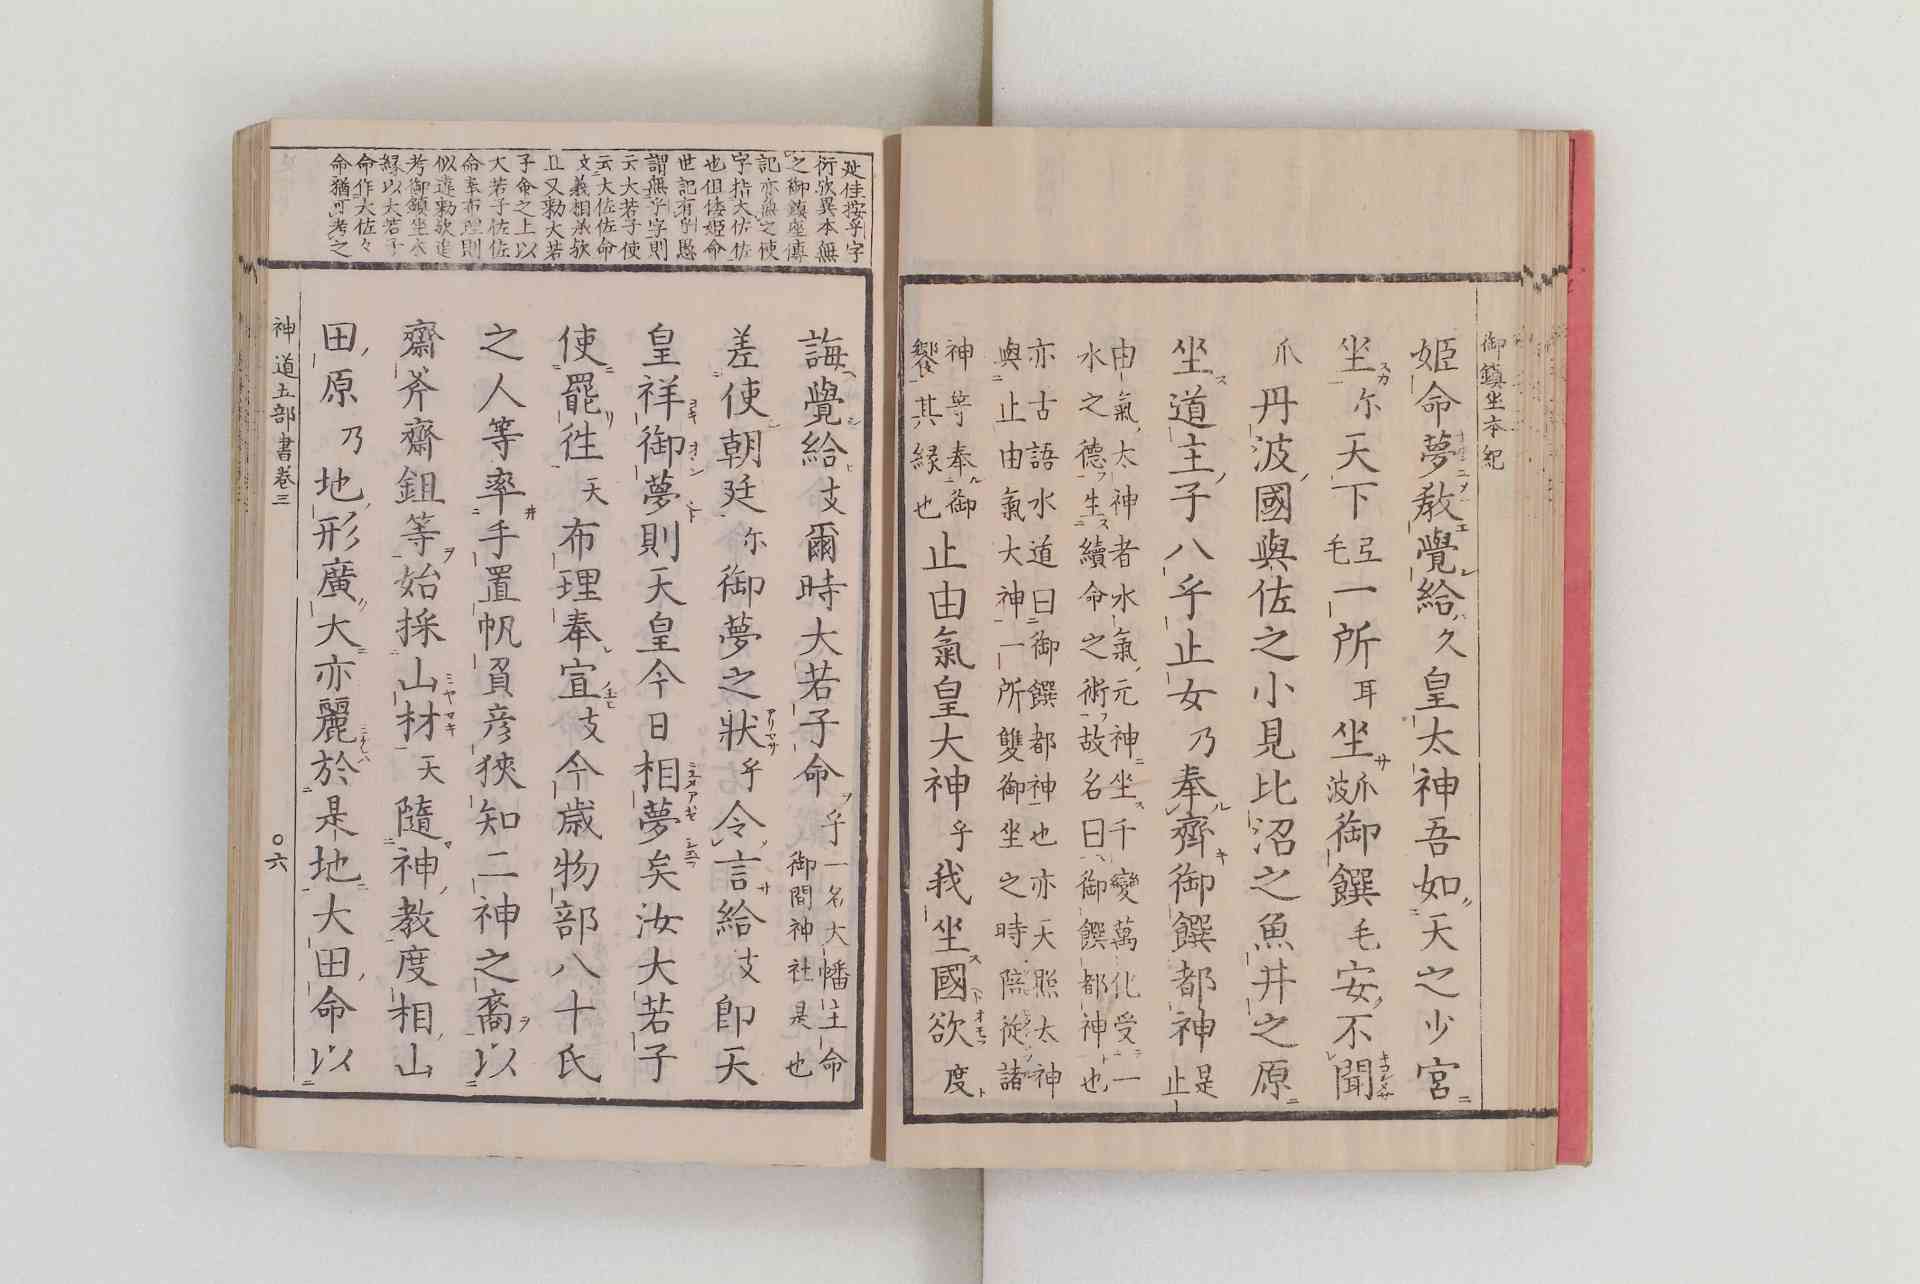 御鎮坐本紀
姫命夢教覺給久皇太神吾如天之少宮
坐尓天下弖毛一所耳坐波爪御饌毛安不聞
爪丹波國與佐之小見比沼之魚井之原
坐道主子八乎止女乃奉齊御饌都神是止
由氣太神者水氣元神坐千變萬化受一
水之德生續命之術故名曰御饌都神也
亦古語水道曰御饌都神也亦天照太神
與止由氣大神一所雙御坐之時陪從諸
神等奉御
饗其縁也止由氣皇大神乎我坐國欲度
誨覺給支爾時大若子命乎一名大幡主命
御間神社是也
差使朝廷尓御夢之狀乎令言給支即天
皇祥御夢則天皇今日相夢矣汝大若子
使罷徃天布理奉宣支今歳物部八十氏
之人等率手置帆負彦狹知二神之裔以
齋斧齋鉏等始採山材天隨神教度相山
田原乃地形廣大亦麗於是地大田命以
延佳按乎字
衍欤異本無
之御鎮座傳
記亦無之使
字指大佐佐
也但倭姫命
世記有乎愚
謂無乎字則
云大若子使
云大佐佐命
文義相承欤
且又勅大若
子命之上以
大若子佐佐
命奉布理則
似違勅欤追
考御鎮坐本
縁以大若子
命作大佐々
命猶可考之
神道五部書卷三
○六